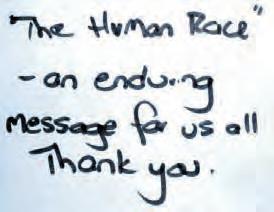 "The Human Race"
- an enduring
message for us all
Thank you.